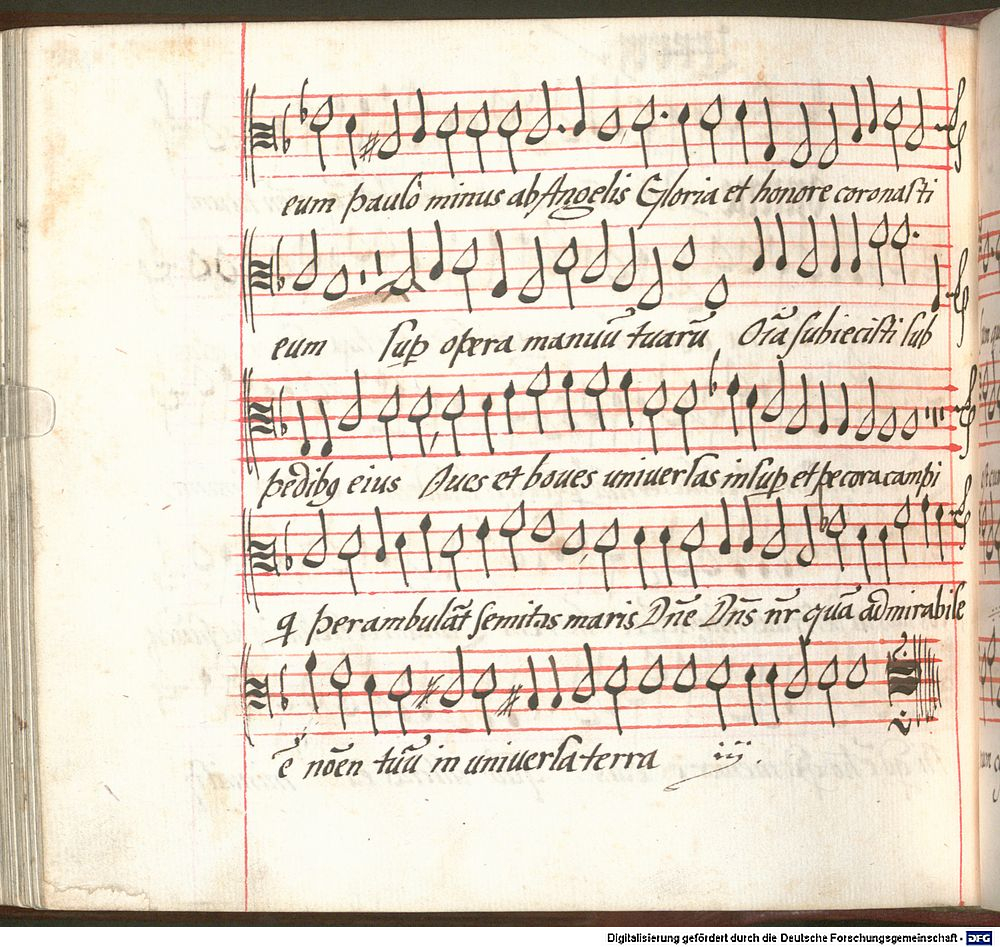 eum paulo minus ab Angelis Gloria et honore coronasti
eum sup opera manuū tuarū Oīa subiecisti sub
pedibꝫ eius Oves et boves universas insup et pecora campi
q perambulāt semitas maris Dn̄e Dn̄s nr̄ quā admirabile
ē nōen tuū in universa terra iij.
Digitalisierung gefördert durch die Deutsche Forschungsgemeinschaft - DFG